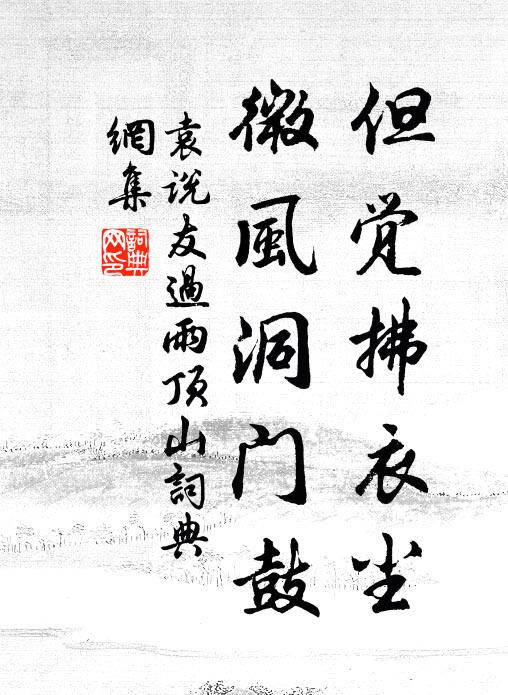 但觉拂衣尘
微風洞门鼓
袁说友過雨顶山詞典
網集
詞典網印